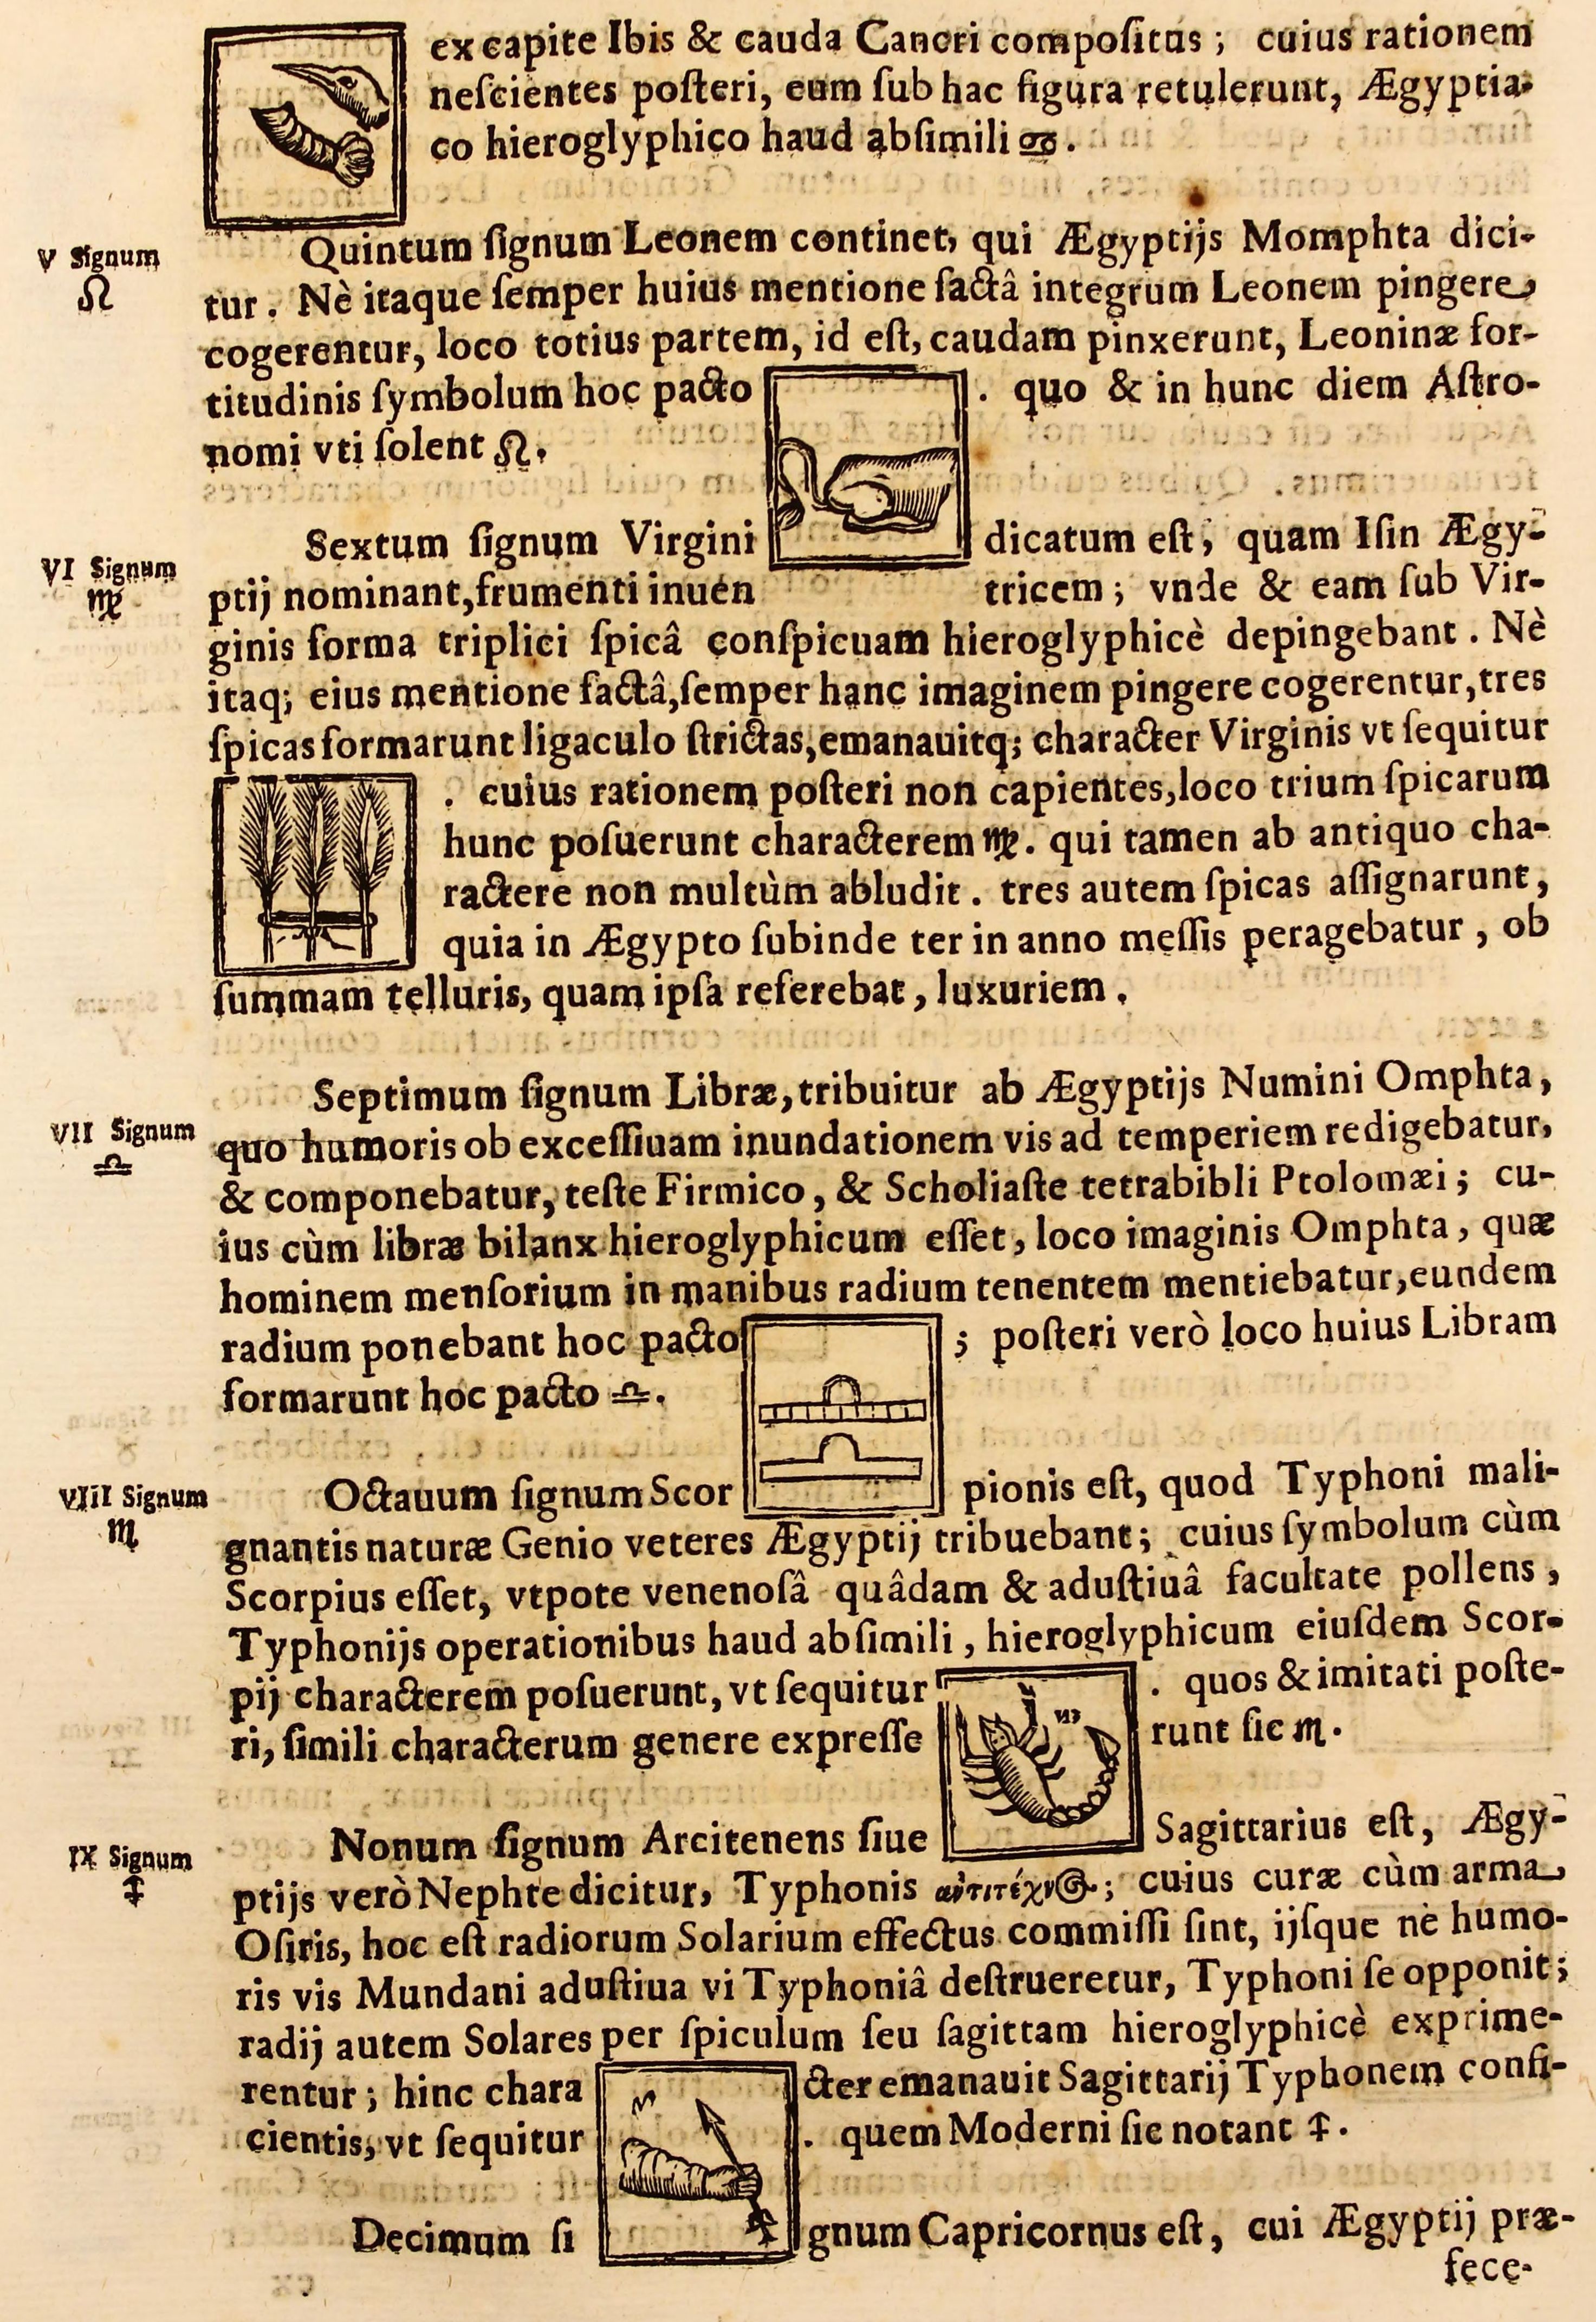 ex capite Ibis & cauda Cancri compoſitus ; cuius rationem
neſcientes poſteri, eum ſub hac figura retulerunt, Ægyptia-
co hieroglyphico haud abſimili ♋.
V Signum
♌
Quintum ſignum Leonem continet, qui Ægyptijs Momphta dici-
tur. Nè itaque ſemper huius mentione factâ integrum Leonem pingere
cogerentur, loco totius partem, id eſt, caudam pinxerunt, Leoninæ for-
titudinis ſymbolum hoc pacto . quo & in hunc diem Aſtro-
nomi vti ſolent ♌.
VI Signum
♍
Sextum ſignum Virgini dicatum eſt, quam Iſin Ægy-
ptij nominant, frumenti inuen tricem ; vnde & eam ſub Vir-
ginis forma triplici ſpicâ conſpicuam hieroglyphicè depingebant. Nè
itaq; eius mentione factâ, ſemper hanc imaginem pingere cogerentur, tres
ſpicas formarunt ligaculo ſtrictas, emanauitq; character Virginis vt ſequitur
. cuius rationem poſteri non capientes, loco trium ſpicarum
hunc poſuerunt characterem ♍. qui tamen ab antiquo cha-
ractere non multùm abludit. tres autem ſpicas aſſignarunt,
quia in Ægypto ſubinde ter in anno meſſis peragebatur, ob
ſummam telluris, quam ipſa referebat, luxuriem.
VII Signum
♎
Septimum ſignum Libræ, tribuitur ab Ægyptijs Numini Omphta,
quo humoris ob exceſſiuam inundationem vis ad temperiem redigebatur,
& componebatur, teſte Firmico, & Scholiaſte tetrabibli Ptolomæi ; cu-
ius cùm libræ bilanx hieroglyphicum eſſet, loco imaginis Omphta, quæ
hominem menſorium in manibus radium tenentem mentiebatur, eundem
radium ponebant hoc pacto ; poſteri verò loco huius Libram
formarunt hoc pacto ♎.
VIII Signum
♏
Octauum ſignum Scor pionis eſt, quod Typhoni mali-
gnantis naturæ Genio veteres Ægyptij tribuebant ; cuius ſymbolum cùm
Scorpius eſſet, vtpote venenoſâ quâdam & aduſtiuâ facultate pollens,
Typhonijs operationibus haud abſimili, hieroglyphicum eiuſdem Scor-
pij characterem poſuerunt, vt ſequitur . quos & imitati poſte-
ri, ſimili characterum genere expreſſe runt ſic ♏.
IX Signum
♐
Nonum ſignum Arcitenens ſiue Sagittarius eſt, Ægy-
ptijs verò Nephte dicitur, Typhonis ἀντιτέχνος ; cuius curæ cùm arma
Oſiris, hoc eſt radiorum Solarium effectus commiſſi ſint, ijſque nè humo-
ris vis Mundani aduſtiua vi Typhoniâ deſtrueretur, Typhoni ſe opponit ;
radij autem Solares per ſpiculum ſeu ſagittam hieroglyphicè exprime-
rentur ; hinc chara cter emanauit Sagittarij Typhonem confi-
cientis, vt ſequitur . quem Moderni ſic notant ♐.
Decimum ſi gnum Capricornus eſt, cui Ægyptij præ-
fece-